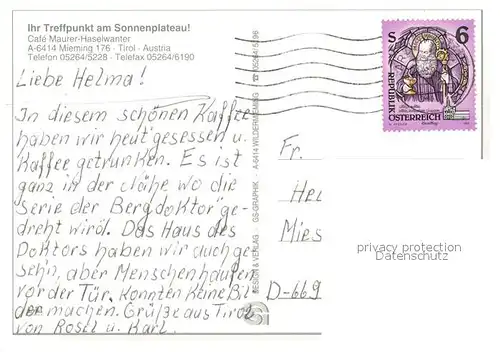 Ihr Treffpunkt am Sonnenplateau!
Café Maurer-Haselwanter
A-6414 Mieming 176 · Tirol · Austria
Telefon 05264/5228 · Telefax 05264/6190
Liebe Helma!
In diesem schönen Kaffee
haben wir heut gesessen u.
Kaffee getrunken. Es ist
ganz in der Nähe wo die
Serie der Bergdoktor ge-
dreht wird. Das Haus des
Doktors haben wir auch ge-
seh'n, aber Menschenhaufen
vor der Tür. Konnten keine Bil-
der machen. Grüße aus Tirol
von Rosel u. Karl.
DESIGN & VERLAG GS-GRAPHIK A-6414
S 6
REPUBLIK
ÖSTERREICH
Fr.
Hel
Mies
D-669
privacy protection
Datenschutz